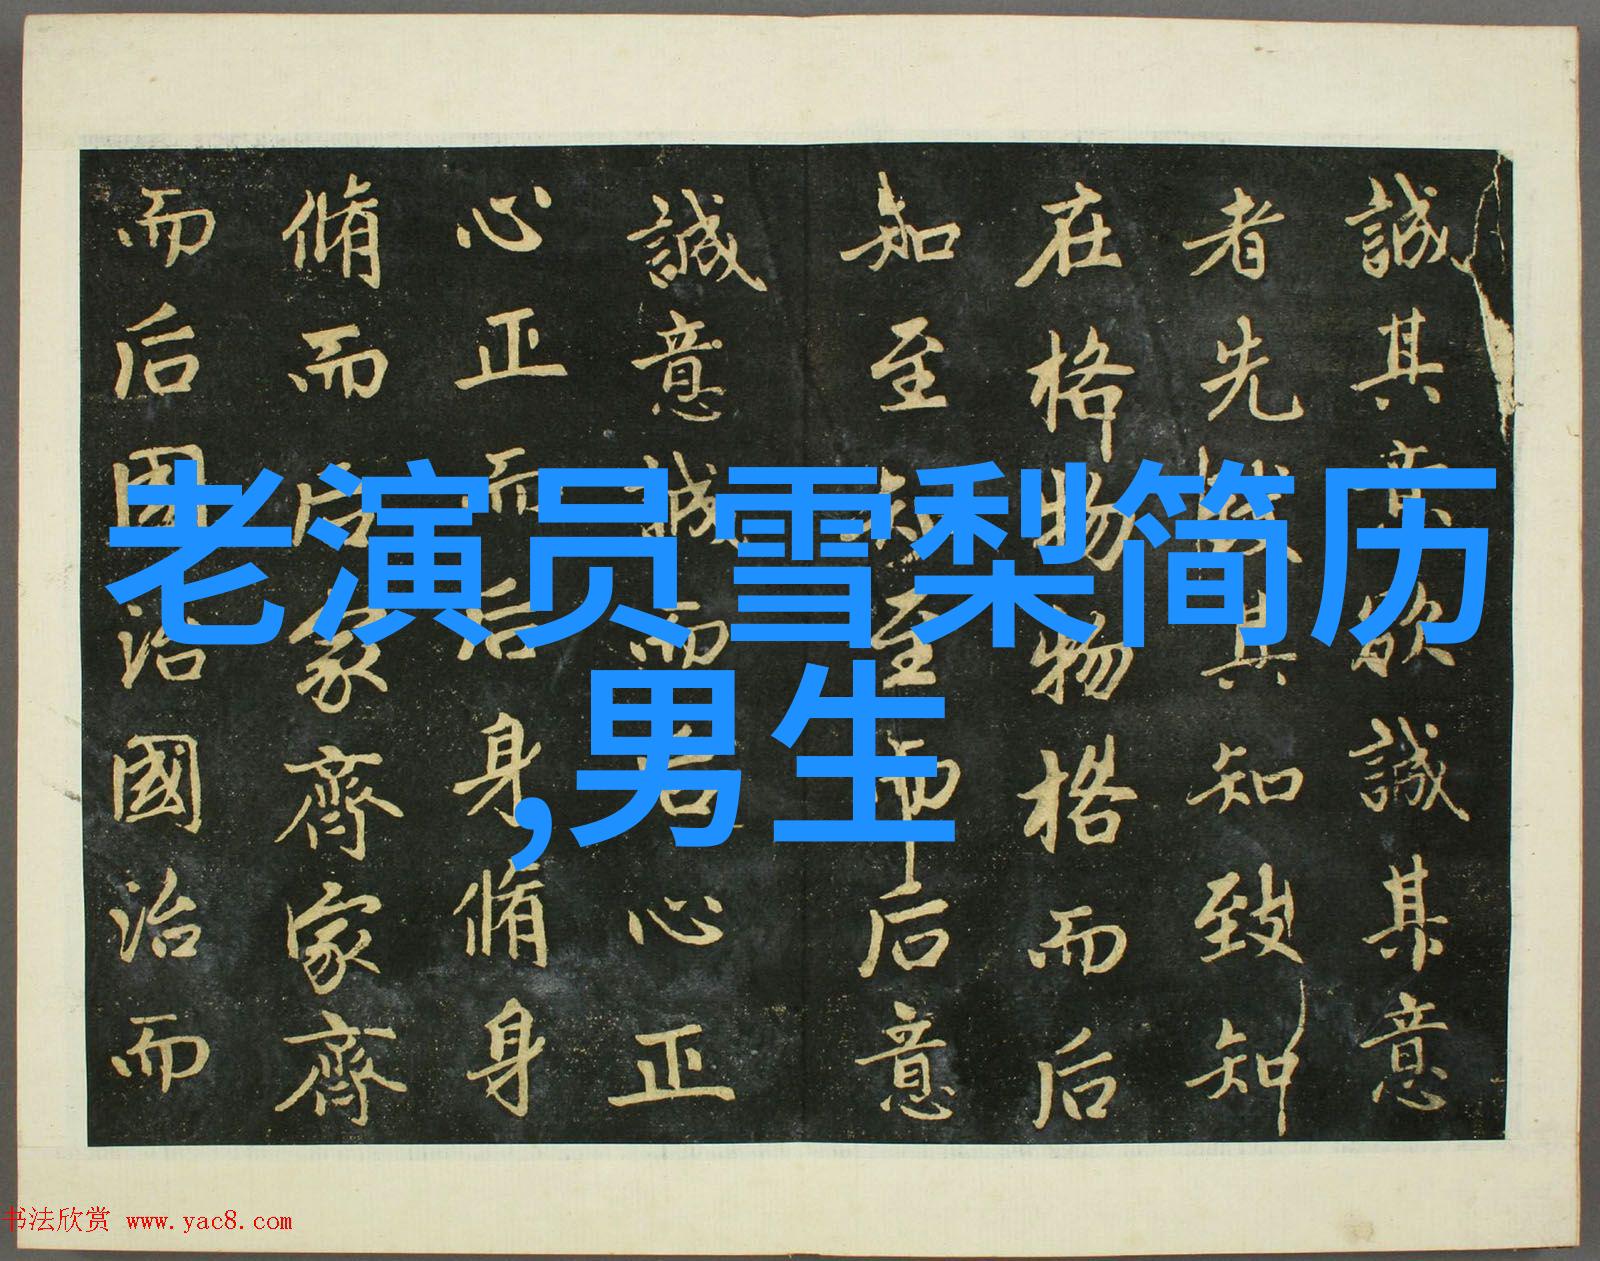 誠其意欲誠其意
者先致其知致知
在格物物格而后
知至知至而后意
誠意誠而后心正
心正而后身脩身
脩而后家齊家齊
而后國治國治而
老演员雪梨简历
,男生
书法欣赏 www.yac8.com